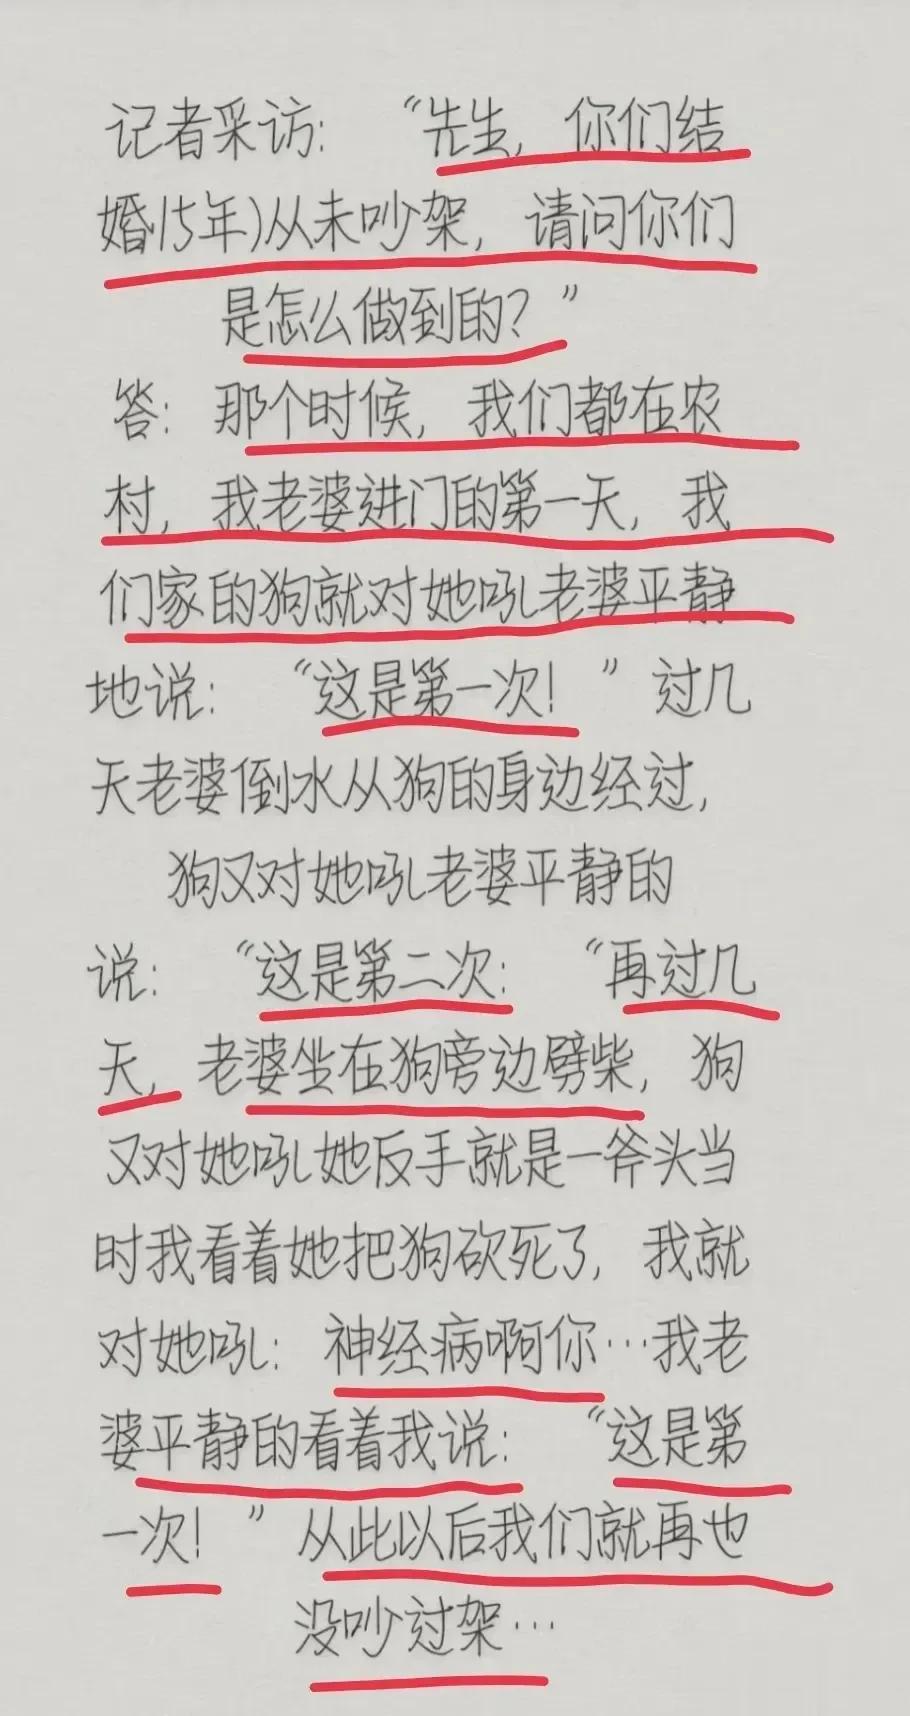 记者采访： “先生，你们结
婚15年)从未吵架，请问你们
是怎么做到的？”
答：那个时候，我们都在农
村，我老婆进门的第一天，我
们家的狗就对她吼老婆平静
地说： “这是第一次！ ”过几
天老婆倒水从狗的身边经过，
狗又对她吼老婆平静的
说： “这是第二次： “再过几
天，老婆坐在狗旁边劈柴，狗
又对她吼她反手就是一斧头当
时我看着她把狗砍死了，我就
对她吼：神经病啊你…我老
婆平静的看着我说： “这是第
一次！ ”从此以后我们就再也
没吵过架…